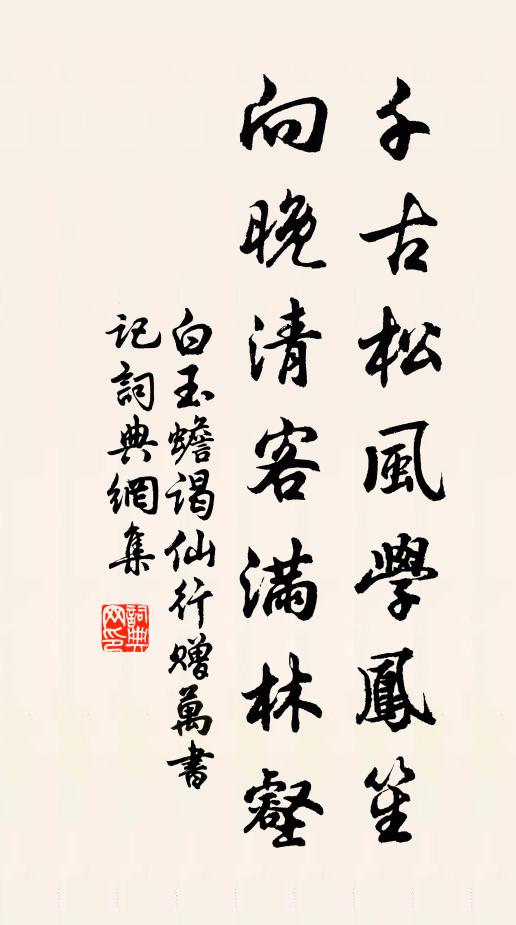 千古松風學鳳笙
向晚清客滿林壑
白玉蟾謁仙行贈萬書
記詞典網集
詞典网印